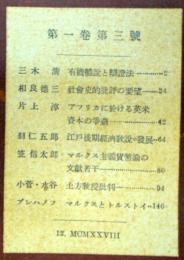 第一卷第三號
三木清 有機體說と辯證法……2
相良德三 社會史的批評の要望……24
片上淳 アフリカに於ける英米
資本の爭鬪……42
羽仁五郎 江戶後期經濟敎說の發展…64
笠信太郎 マルクス主義貨幣論の
文獻若干……80
小菅・水谷 土方敎授批判……94
プレハノフ マルクスとトルストイ…146
12. MCMXXVIII